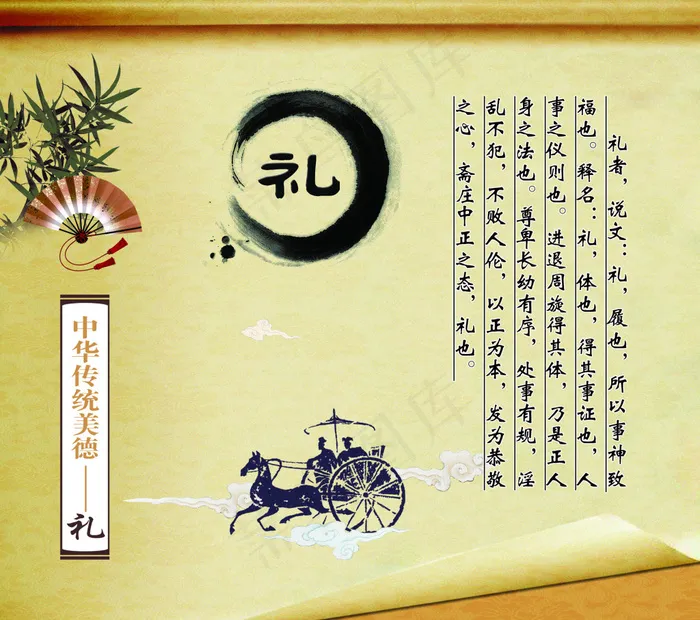 礼
礼者，说文：礼，履也，所以事神致
福也。释名：礼，体也，得其事证也，人
事之仪则也。进退周旋得其体，乃是正人
身之法也。尊卑长幼有序，处事有规，淫
乱不犯，不败人伦，以正为本，发为恭敬
之心，斋庄中正之态，礼也。
中华传统美德——礼